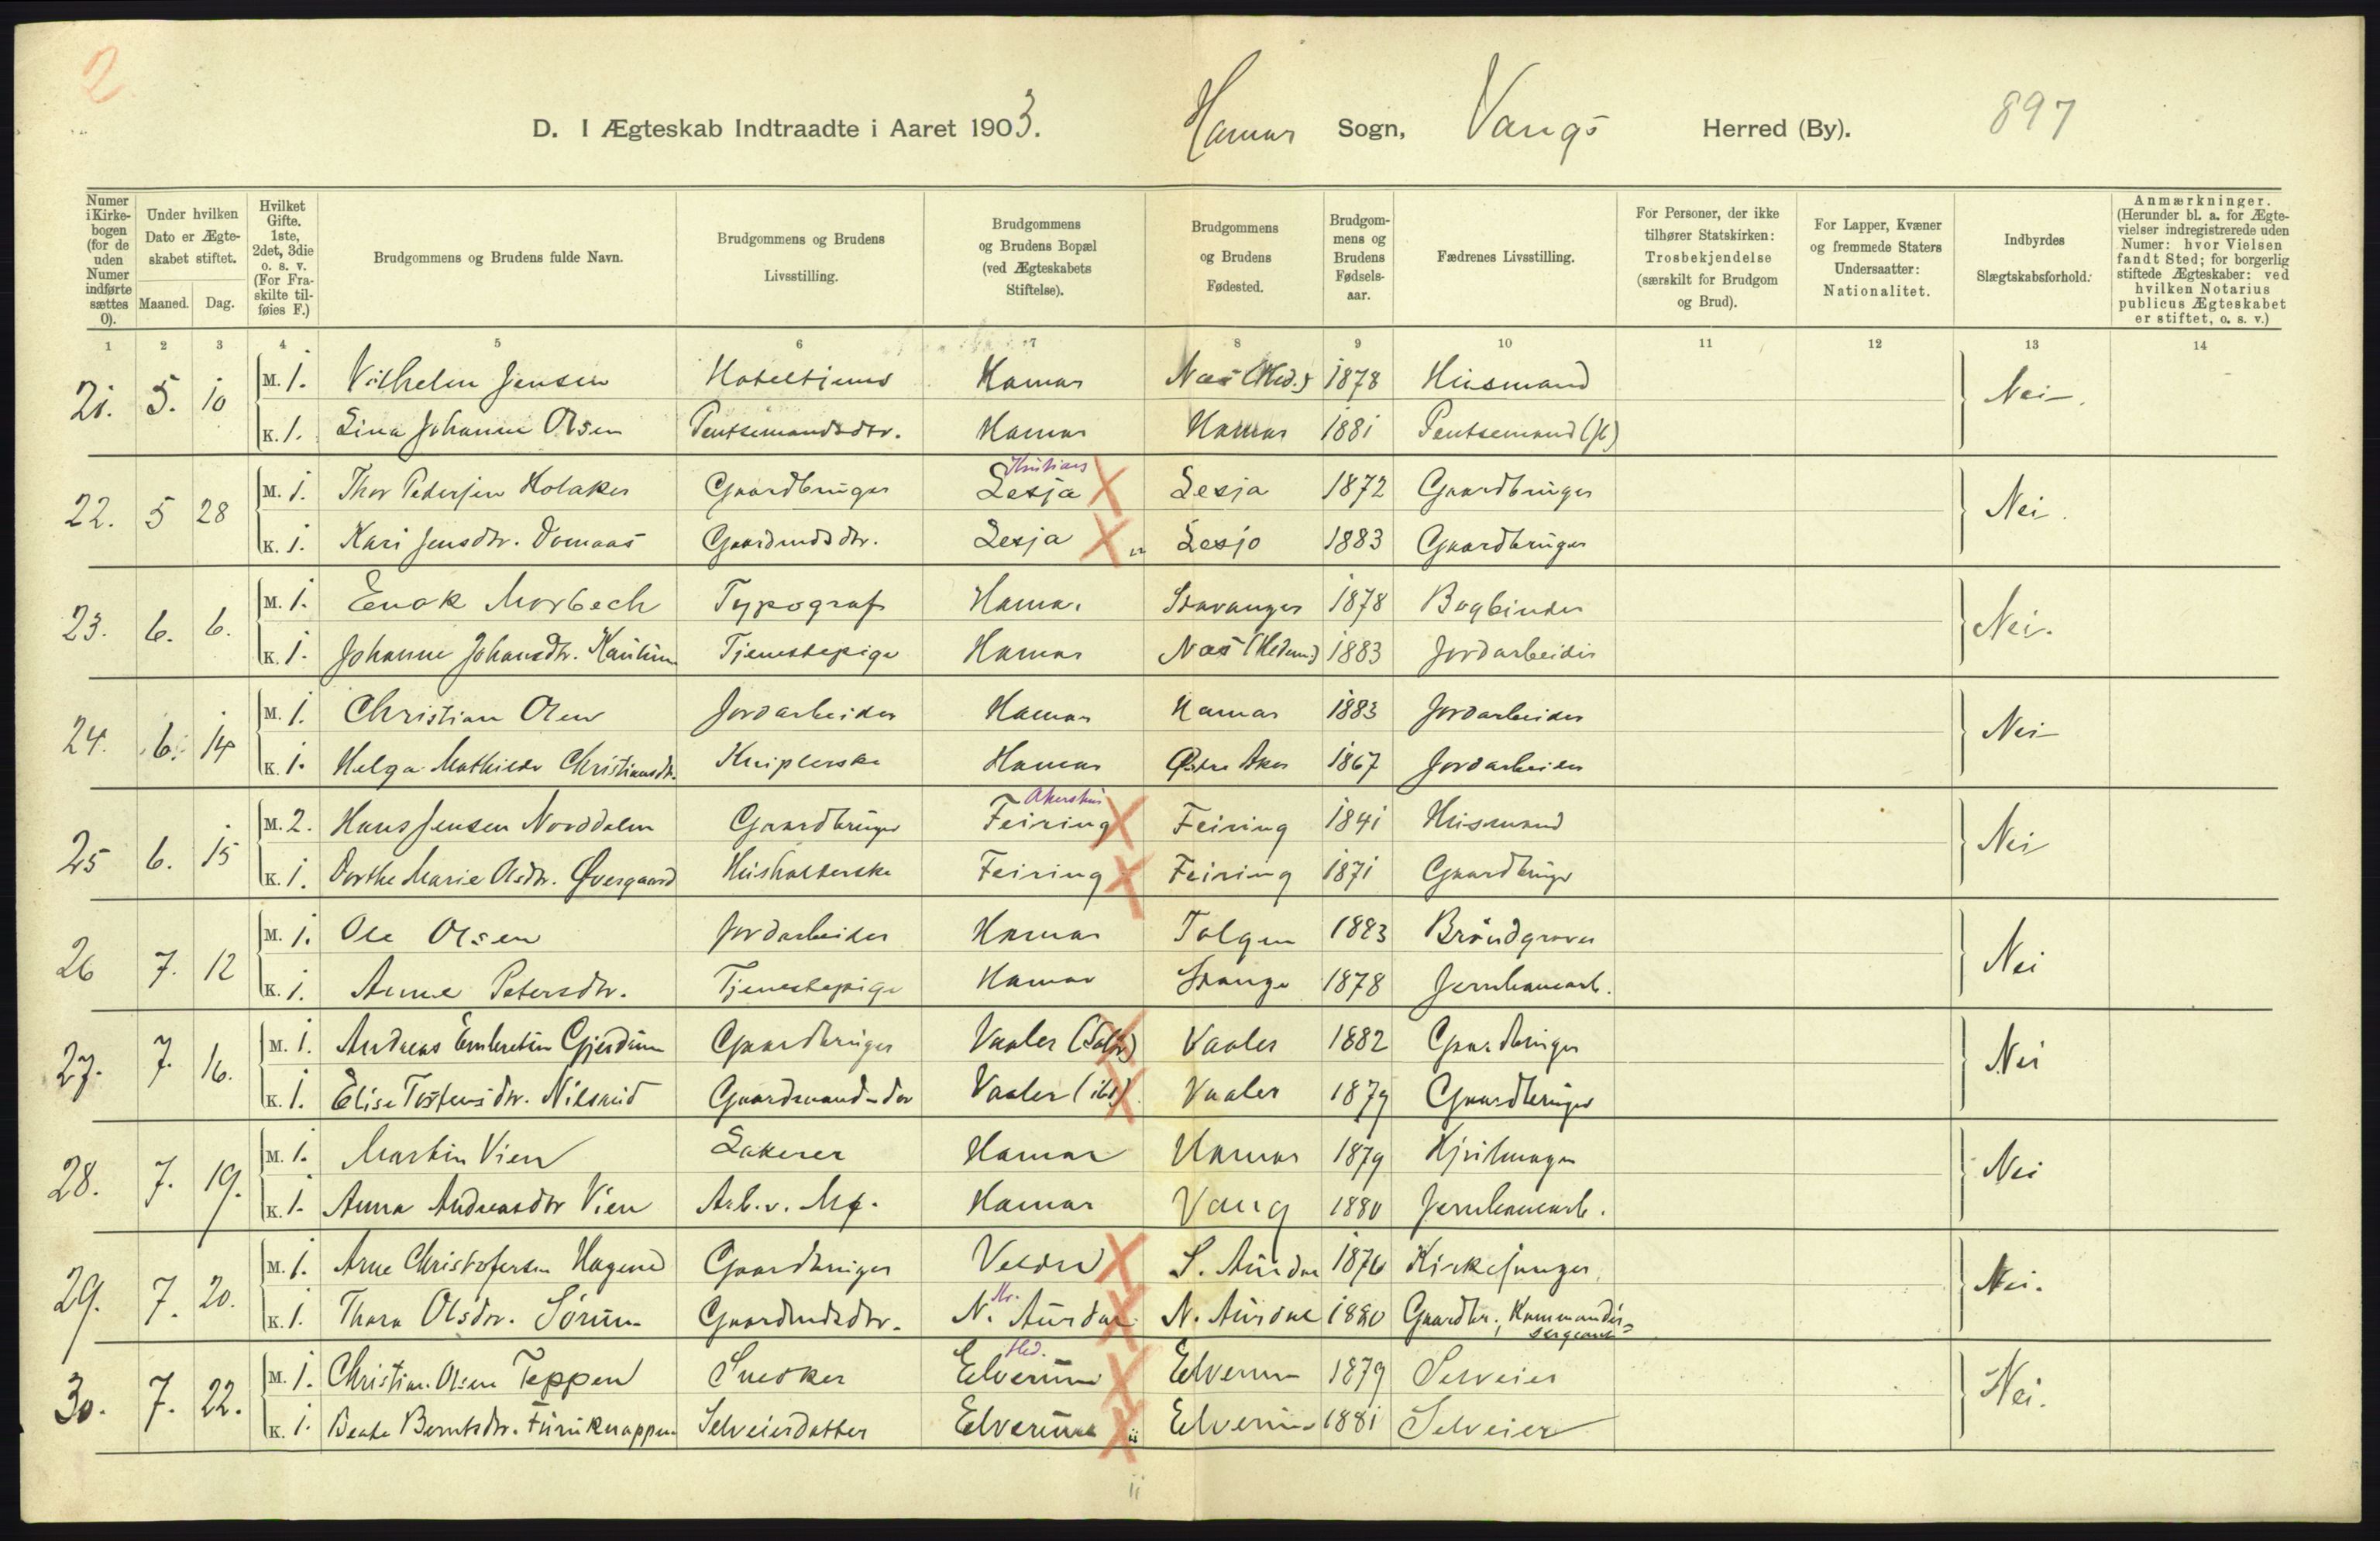 2
D. I Ægteskab Indtraadte i Aaret 1903. Hamar Sogn, Vangs Herred (By). 897
Numer i Kirkebogen (for de uden Numer indførte sættes 0). Under hvilken Dato er Ægteskabet stiftet. Maaned. Dag. Hvilket Gifte. 1ste, 2det, 3die o. s. v. (For Fraskilte tilføies F.) Brudgommens og Brudens fulde Navn. Brudgommens og Brudens Livsstilling. Brudgommens og Brudens Bopæl (ved Ægteskabets Stiftelse). Brudgommens og Brudens Fødested. Brudgommens og Brudens Fødselsaar. Fædrenes Livsstilling. For Personer, der ikke tilhører Statskirken: Trosbekjendelse (særskilt for Brudgom og Brud). For Lapper, Kvæner og fremmede Staters Undersaatter: Nationalitet. Indbyrdes Slægtskabsforhold. Anmærkninger. (Herunder bl. a. for Ægtevielser indregistrerede uden Numer: hvor Vielsen fandt Sted; for borgerlig stiftede Ægteskaber: ved hvilken Notarius publicus Ægteskabet er stiftet, o. s. v.)
1 2 3 4 5 6 7 8 9 10 11 12 13 14
21. 5. 10 M. 1. Vilhelm Jensen Hamar Næs (Hed.) 1878 Husmand Nei
K. 1. Lina Johanne Olsen Hamar Hamar 1881
Kristians
22. 5 28 M. 1. Thor Pedersen Holaker Gaardbruger Lesja Lesja 1872 Gaardbruger Nei.
K. 1. Kari Jensdtr. Domaas Gaardmdsdtr. Lesja Lesja 1883 Gaardbruger
23. 6. 6. M. 1. Enok Morbech Typograf Hamar Stavanger 1878 Bogbinder Nei.
K. 1. Johanne Johansdtr. Tjenestepige Hamar Næs (Hedem.) 1883 Jordarbeider
24. 6. 14 M. 1. Christian Olsen Jordarbeider Hamar Hamar 1883 Jordarbeider Nei
K. 1. Helga Mathilde Christiansdtr. Kniplerske Hamar Østre Aker 1867 Jordarbeider
Akershus
25 6. 15 M. 2. Hans Jensen Norddalen Gaardbruger Feiring Feiring 1841 Husmand Nei
K. 1. Dorthe Marie Olsdtr. Øvergaard Husholderske Feiring Feiring 1871 Gaardbruger
26 7. 12 M. 1. Ole Olsen Jordarbeider Hamar Tolgen 1883 Brøndgraver Nei
K. 1. Anne Petersdtr. Tjenestepige Hamar Stange 1878 Jernbanearb.
27. 7. 16. M. 1. Andreas Embretsen Gjerdrum Gaardbruger Vaaler (Solør) Vaaler 1882 Gaardbruger Nei
K. 1. Elise Tostensdtr. Gaardmandsdtr Vaaler (ibd) Vaaler 1879 Gaardbruger
28. 7. 19. M. 1. Martin Vien Lakerer Hamar Hamar 1879 Hjulmager Nei
K. 1. Anna Andreasdtr Vien Arb. v. Hamar Vang 1880 Jernbanearb.
29. 7. 20. M. 1. Arne Christofersen Hagene Gaardbruger Veldre S. Aurdal 1876 Kirkesanger Nei.
Kr.
K. 1. Thora Olsdtr. Sørum Gaardmdsdtr. N. Aurdal N. Aurdal 1880 Gaardbr., Kommandersergeant
Hed.
30. 7. 22. M. 1. Christian Olsen Teppen Snedker Elverum Elverum 1879 Selveier Nei.
K. 1. Beate Berntsdtr. Furuknappen Selveierdatter Elverum Elverum 1881 Selveier
11